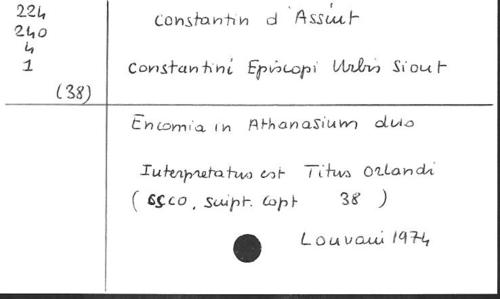 224
240
4
1
(38)
Constantin d'Assiut
Constantini Episcopi Urbis Siout
Encomia in Athanasium duo
Interpretatus est Titus Orlandi
(CSCO, script. copt 38)
Louvain 1974